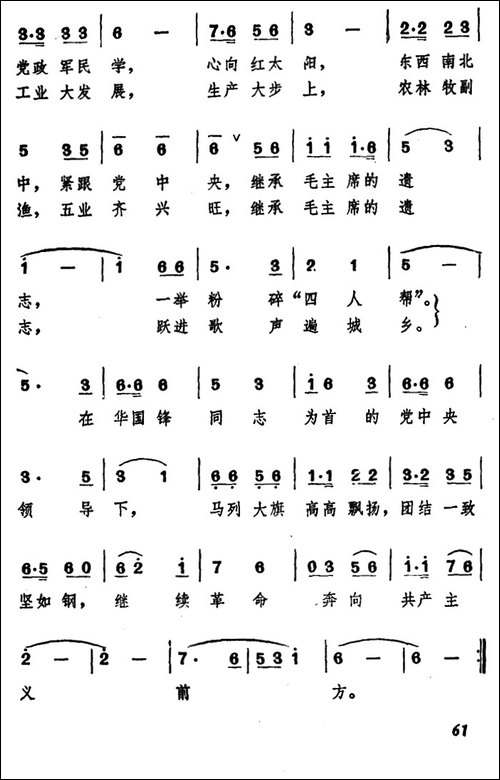 3·3 3 3 | 6 — | 7·6 5 6 | 3 — | 2·2 2 3
党政 军民 学， 心向 红太 阳， 东西 南北
工业 大发 展， 生产 大步 上， 农林 牧副
5 3 5 | 6 6 | 6 ∨ 5 6 | i i i·6 | 5 3
中，紧跟 党 中 央，继承 毛主 席的 遗
渔，五业 齐 兴 旺，继承 毛主 席的 遗
i — | i 6 6 | 5· 3 | 2· 1 | 5 —
志， 一举 粉 碎“四 人 帮”。
志， 跃进 歌 声遍 城 乡。
5· 3 | 6·6 6 | 5 3 | i 6 3 | 6·6 6 6
在 华国 锋 同 志 为首 的 党中 央
3· 5 | 3 1 | 6 6 5 6 | 1·1 2 2 | 3·2 3 5
领 导 下， 马列 大旗 高高 飘扬，团结 一致
6·5 6 0 | 6 2 i | 7 6 | 0 3 5 6 | i·i 7 6
坚如 钢， 继 续 革 命 奔 向 共产 主
2 — | 2 — | 7· 6 | 5 3 i | 6 — | 6 — :‖
义 前 方。
61